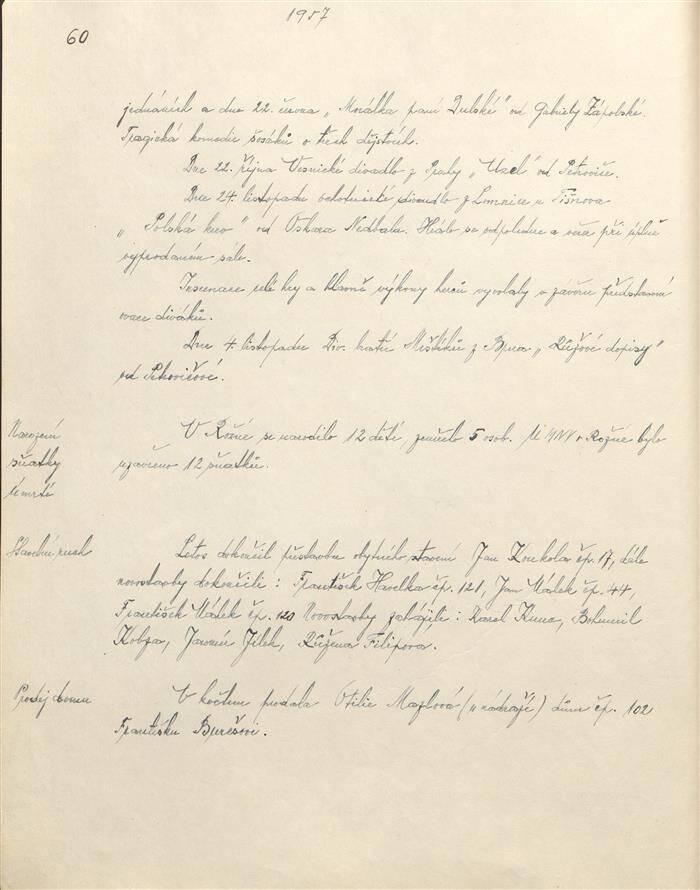 1957
60
jednáních a dne 22. června „Morálka paní Dulské" od Gabriely Zápolské.
Tragická komedie šosáků o třech dějstvích.
Dne 22. října Vesnické divadlo z Prahy „Uzel" od Petroviče.
Dne 24. listopadu ochotnické divadlo z Lomnice u Tišnova
„Polská krev" od Oskara Nedbala. Hrálo se odpoledne a večer při úplně
vyprodaném sále.
Inscenace celé hry a hlavně výkony herců vyvolaly v závěru představení
ovace diváků.
Dne 4. listopadu Div. bratří Mrštíků z Brna „Růžové dopisy"
od Petrovičové.
Narození
sňatky
úmrtí
V Rožné se narodilo 12 dětí, zemřelo 5 osob. U MNV v Rožné bylo
uzavřeno 12 sňatků.
Stavební ruch
Letos dokončil přestavbu obytného stavení Jan Koukola čp. 17, dále
novostavby dokončili: František Havelka čp. 121, Jan Málek čp. 44,
František Málek čp. 120 Novostavby zahájili: Karel Kuna, Bohumil
Kobza, Jaromír Jílek, Růžena Filipova.
Prodej domu
V květnu prodala Otilie Mazlová (u nádraží) dům čp. 102
Františku Burešovi.